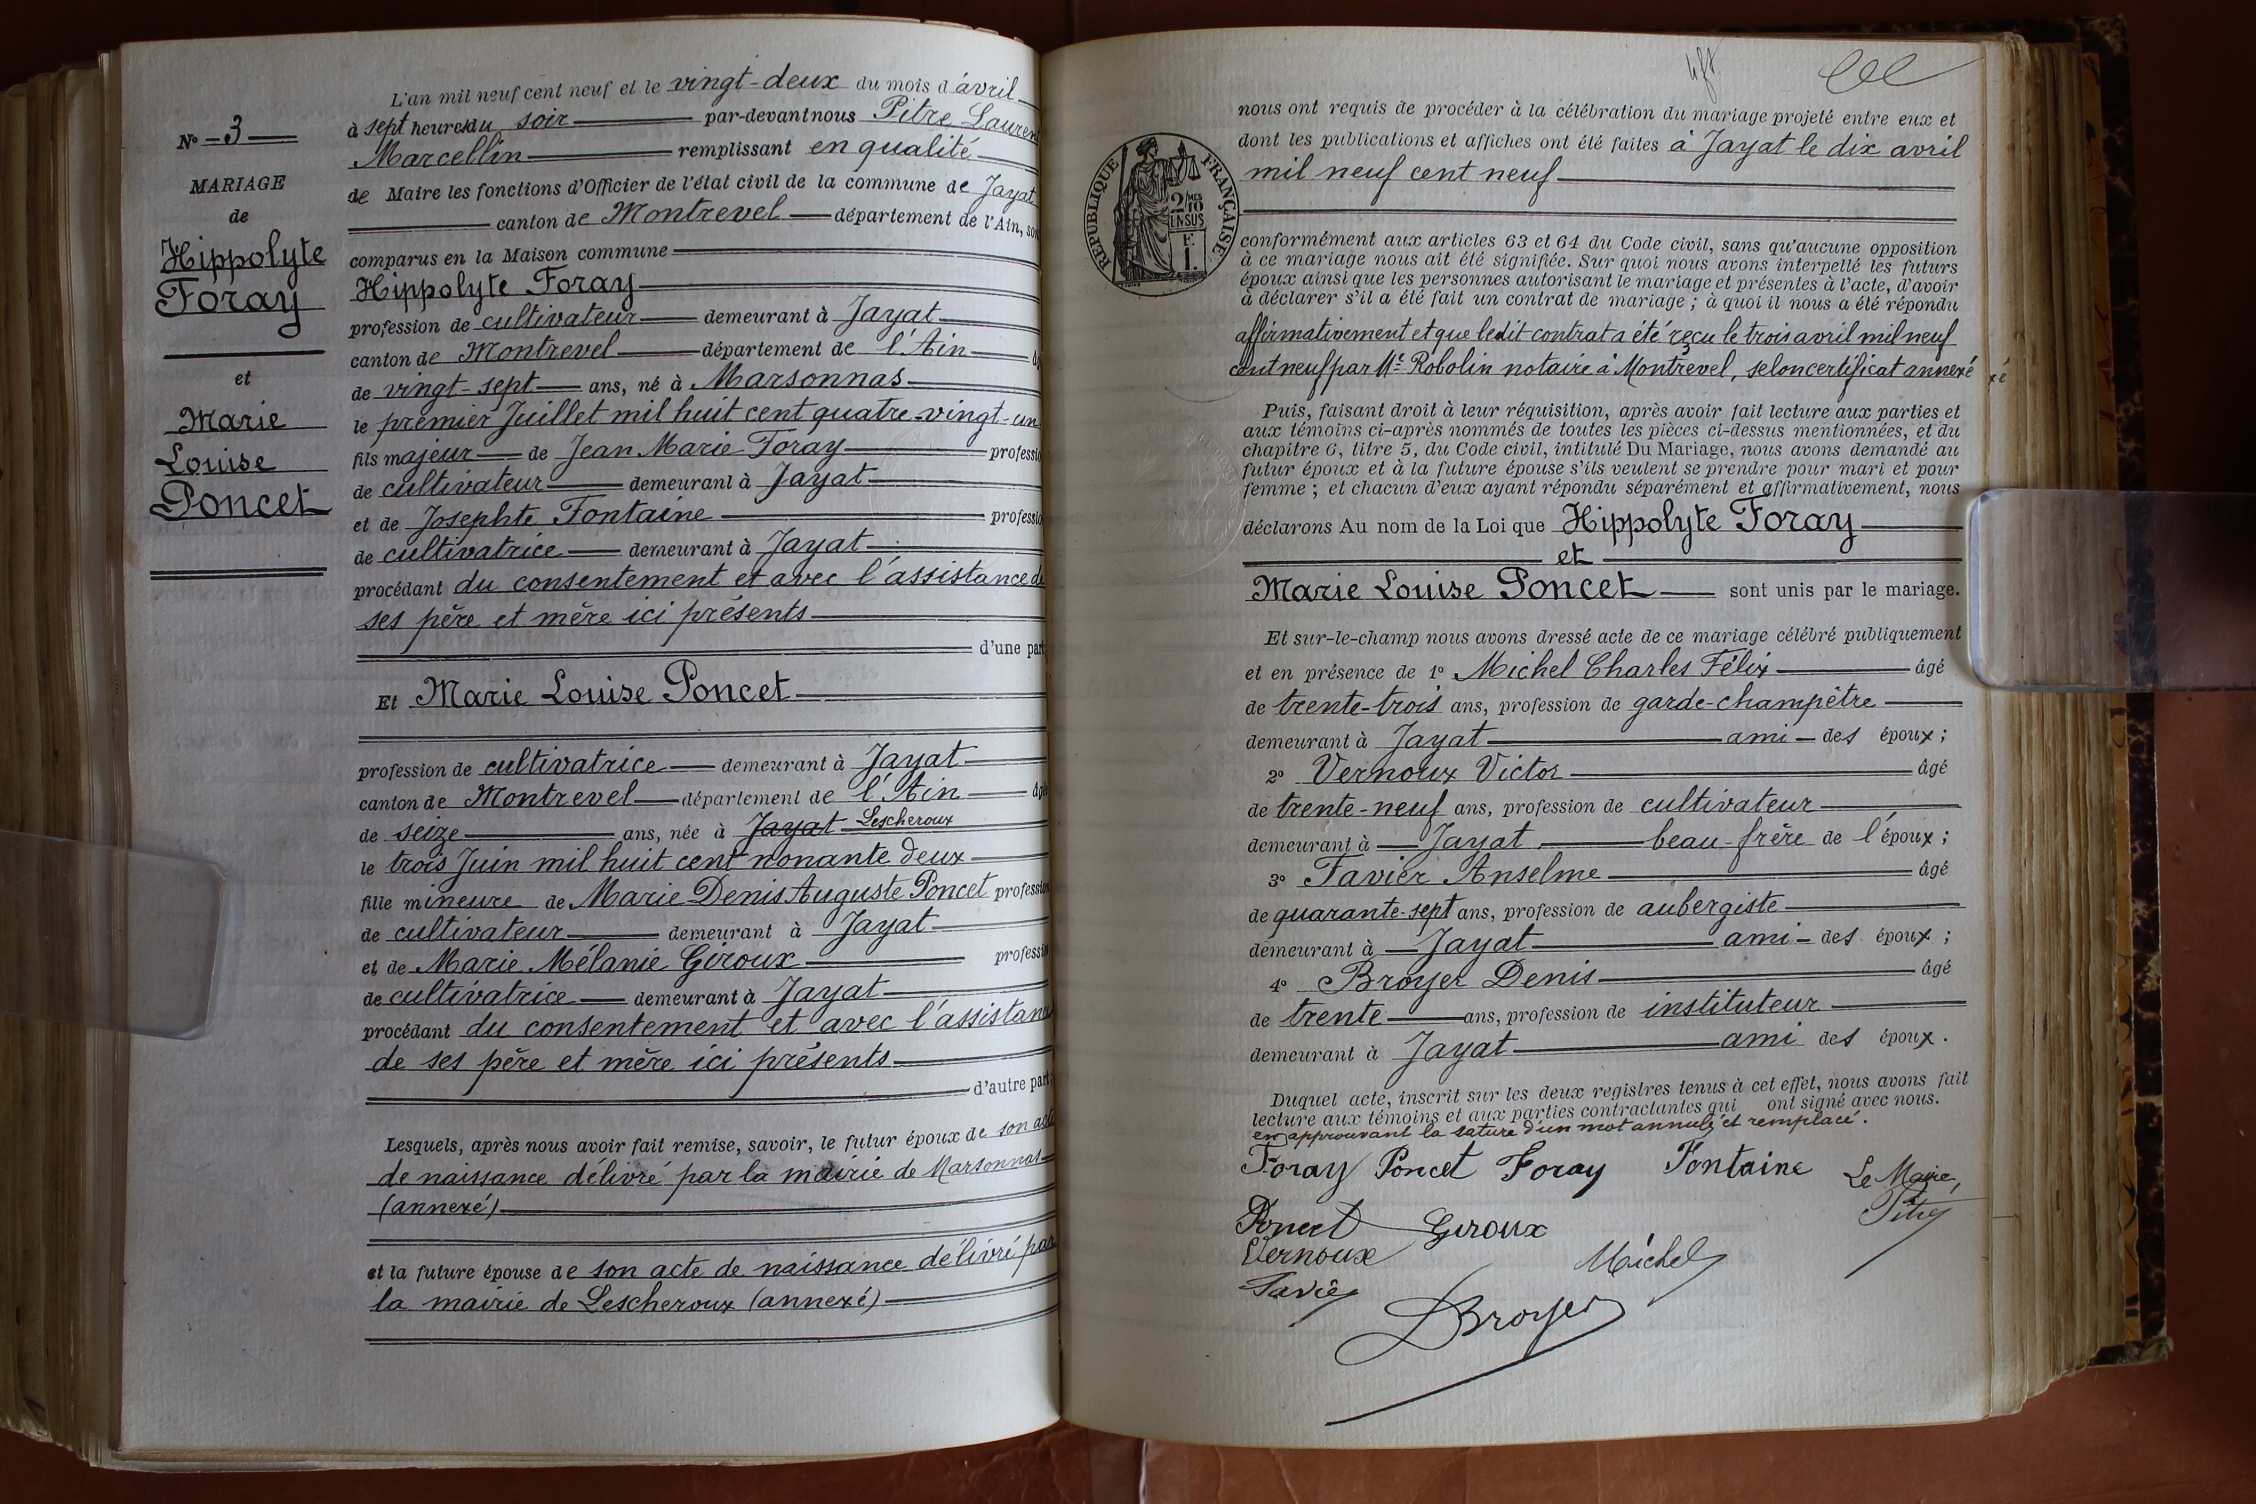 L'an mil neuf cent neuf et le vingt-deux du mois d'avril
à sept heures du soir par-devant nous Pitre Laurent
Marcellin remplissant en qualité
de Maire les fonctions d'Officier de l'état civil de la commune de Jayat
canton de Montrevel département de l'Ain, sont
comparus en la Maison commune
Hippolyte Foray
profession de cultivateur demeurant à Jayat
canton de Montrevel département de l'Ain
de vingt-sept ans, né à Marsonnas
le premier Juillet mil huit cent quatre-vingt-un
fils majeur de Jean Marie Foray profession
de cultivateur demeurant à Jayat
et de Josephte Fontaine profession
de cultivatrice demeurant à Jayat
procédant du consentement et avec l'assistance de
ses père et mère ici présents
d'une part
Et Marie Louise Poncet
profession de cultivatrice demeurant à Jayat
canton de Montrevel département de l'Ain âgée
de seize ans, née à Jayat Lescheroux
le trois Juin mil huit cent nonante deux
fille mineure de Marie Denis Auguste Poncet profession
de cultivateur demeurant à Jayat
et de Marie Mélanie Giroux profession
de cultivatrice demeurant à Jayat
procédant du consentement et avec l'assistance
de ses père et mère ici présents
d'autre part
Lesquels, après nous avoir fait remise, savoir, le futur époux de son acte
de naissance délivré par la mairie de Marsonnas
(annexé)
et la future épouse de son acte de naissance délivré par
la mairie de Lescheroux (annexé)
No 3
MARIAGE
de
Hippolyte
Foray
et
Marie
Louise
Poncet
nous ont requis de procéder à la célébration du mariage projeté entre eux et
dont les publications et affiches ont été faites à Jayat le dix avril
mil neuf cent neuf
RÉPUBLIQUE FRANÇAISE
2/10 MES
EN SUS
F.
1.
conformément aux articles 63 et 64 du Code civil, sans qu'aucune opposition
à ce mariage nous ait été signifiée. Sur quoi nous avons interpellé les futurs
époux ainsi que les personnes autorisant le mariage et présentes à l'acte, d'avoir
à déclarer s'il a été fait un contrat de mariage ; à quoi il nous a été répondu
affirmativement et que ledit contrat a été reçu le trois avril mil neuf
cent neuf par Me Robolin notaire à Montrevel, selon certificat annexé
Puis, faisant droit à leur réquisition, après avoir fait lecture aux parties et
aux témoins ci-après nommés de toutes les pièces ci-dessus mentionnées, et du
chapitre 6, titre 5, du Code civil, intitulé Du Mariage, nous avons demandé au
futur époux et à la future épouse s'ils veulent se prendre pour mari et pour
femme ; et chacun d'eux ayant répondu séparément et affirmativement, nous
déclarons Au nom de la Loi que Hippolyte Foray
et
Marie Louise Poncet sont unis par le mariage.
Et sur-le-champ nous avons dressé acte de ce mariage célébré publiquement
et en présence de 1o Michel Charles Félix âgé
de trente-trois ans, profession de garde-champêtre
demeurant à Jayat ami des époux ;
2o Vernoux Victor âgé
de trente-neuf ans, profession de cultivateur
demeurant à Jayat beau-frère de l'époux ;
3o Favier Anselme âgé
de quarante-sept ans, profession de aubergiste
demeurant à Jayat ami des époux ;
4o Broyer Denis âgé
de trente ans, profession de instituteur
demeurant à Jayat ami des époux.
Duquel acte, inscrit sur les deux registres tenus à cet effet, nous avons fait
lecture aux témoins et aux parties contractantes qui ont signé avec nous.
en approuvant la rature d'un mot annulé et remplacé.
Foray Poncet Foray Fontaine Le Maire,
Pitre
Poncet Giroux
Vernoux Michel
Favier
DBroyer